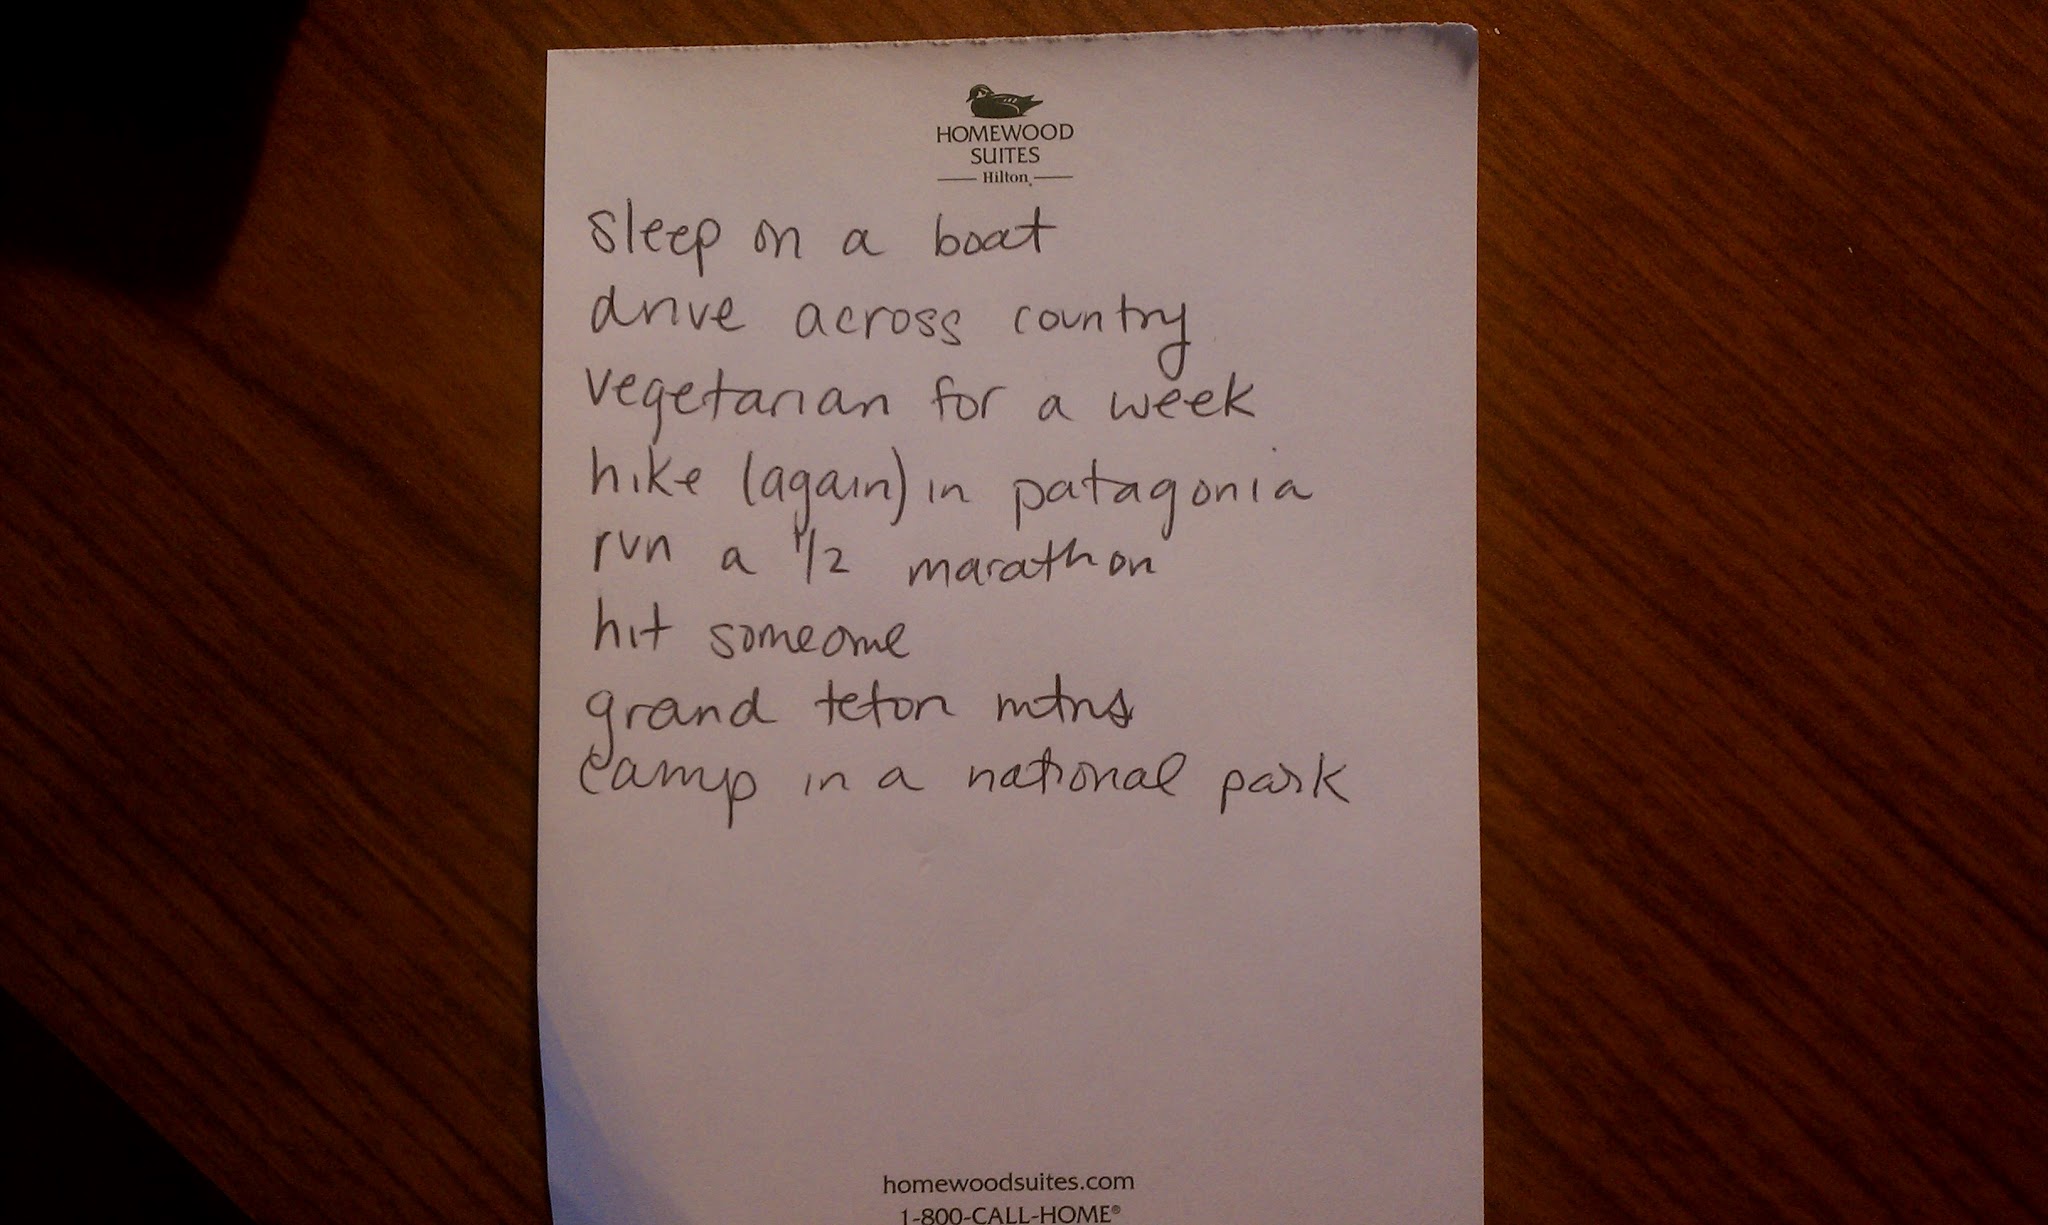 HOMEWOOD
SUITES
Hilton
sleep on a boat
drive across country
vegetarian for a week
hike (again) in patagonia
run a 1/2 marathon
hit someone
grand teton mtns
camp in a national park
homewoodsuites.com
1-800-CALL-HOME®